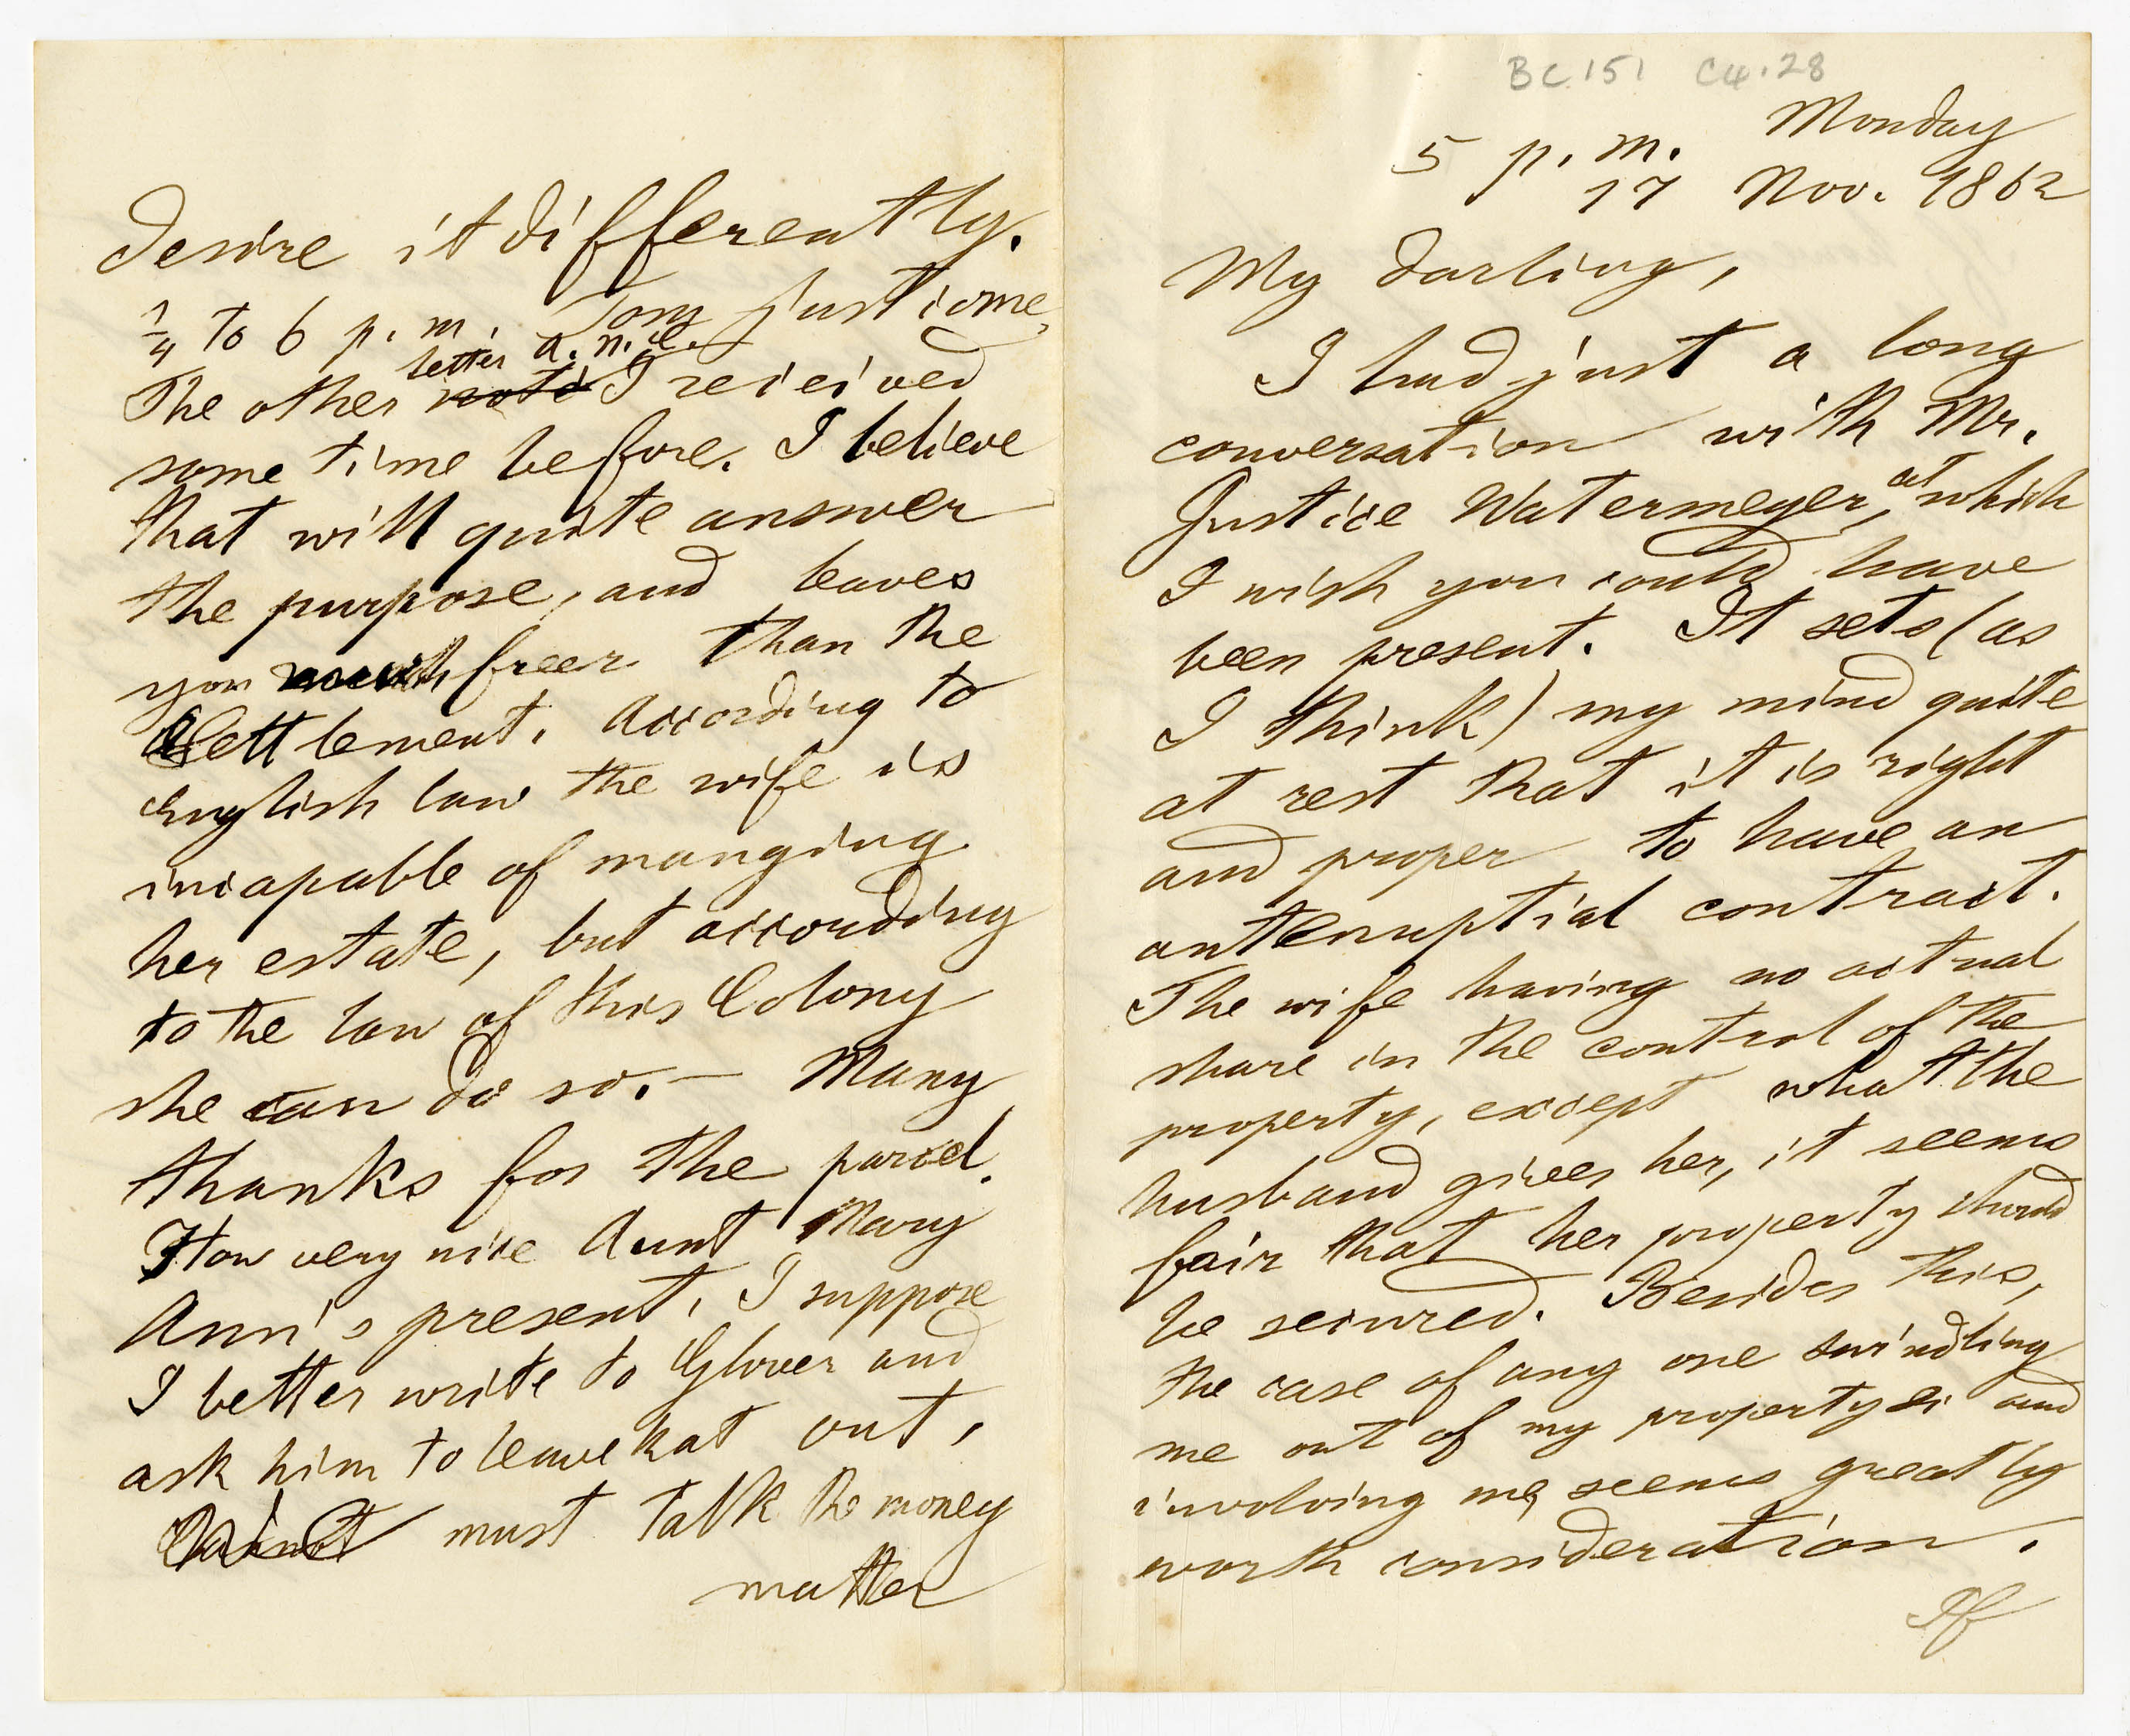 BC 151 C4.28
Monday
5 p. m.
17 Nov. 1862
My darling,
I had just a long
conversation with Mr.
Justice Watermeyer, at which
I wish you could have
been present. It sets (as
I think) my mind quite
at rest that it is right
and proper to have an
antenuptial contract.
The wife having no actual
share in the control of the
property, except what the
husband gives her, it seems
fair that her property should
be secured. Besides this,
the case of any one swindling
me out of my property and
involving me, seems greatly
worth consideration.
If
desire it differently.
¼ to 6 p. m. just come,
letter a. n. c.
The other note I received
some time before. I believe
that will quite answer
the purpose, and leaves
you much freer than the
Settlement. According to
English law the wife is
incapable of manging
her estate, but accordding
to the law of this Colony
she can do so. — Many
thanks for the parcel.
How very nice Aunt Mary
Ann's present. I suppose
I better write to Glover and
ask him to leave kat out,
must talk the money
matter